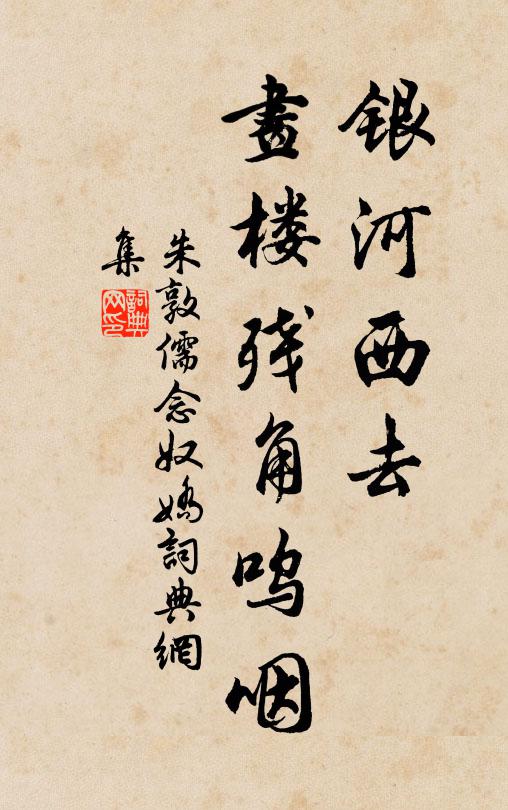 银河西去
畫楼残角鸣咽
朱敦儒念奴嬌詞典網
集
詞典
网印